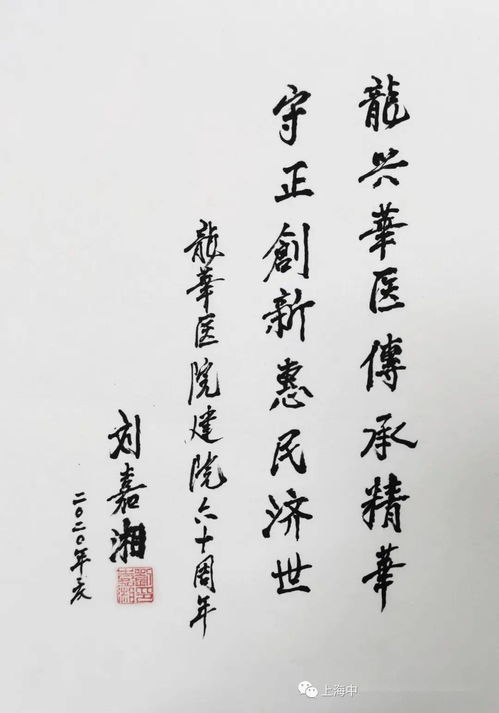 龍兴華医傳承精華
守正創新惠民济世
龍華医院建院六十周年
刘嘉湘
二〇二〇年亥
上海中